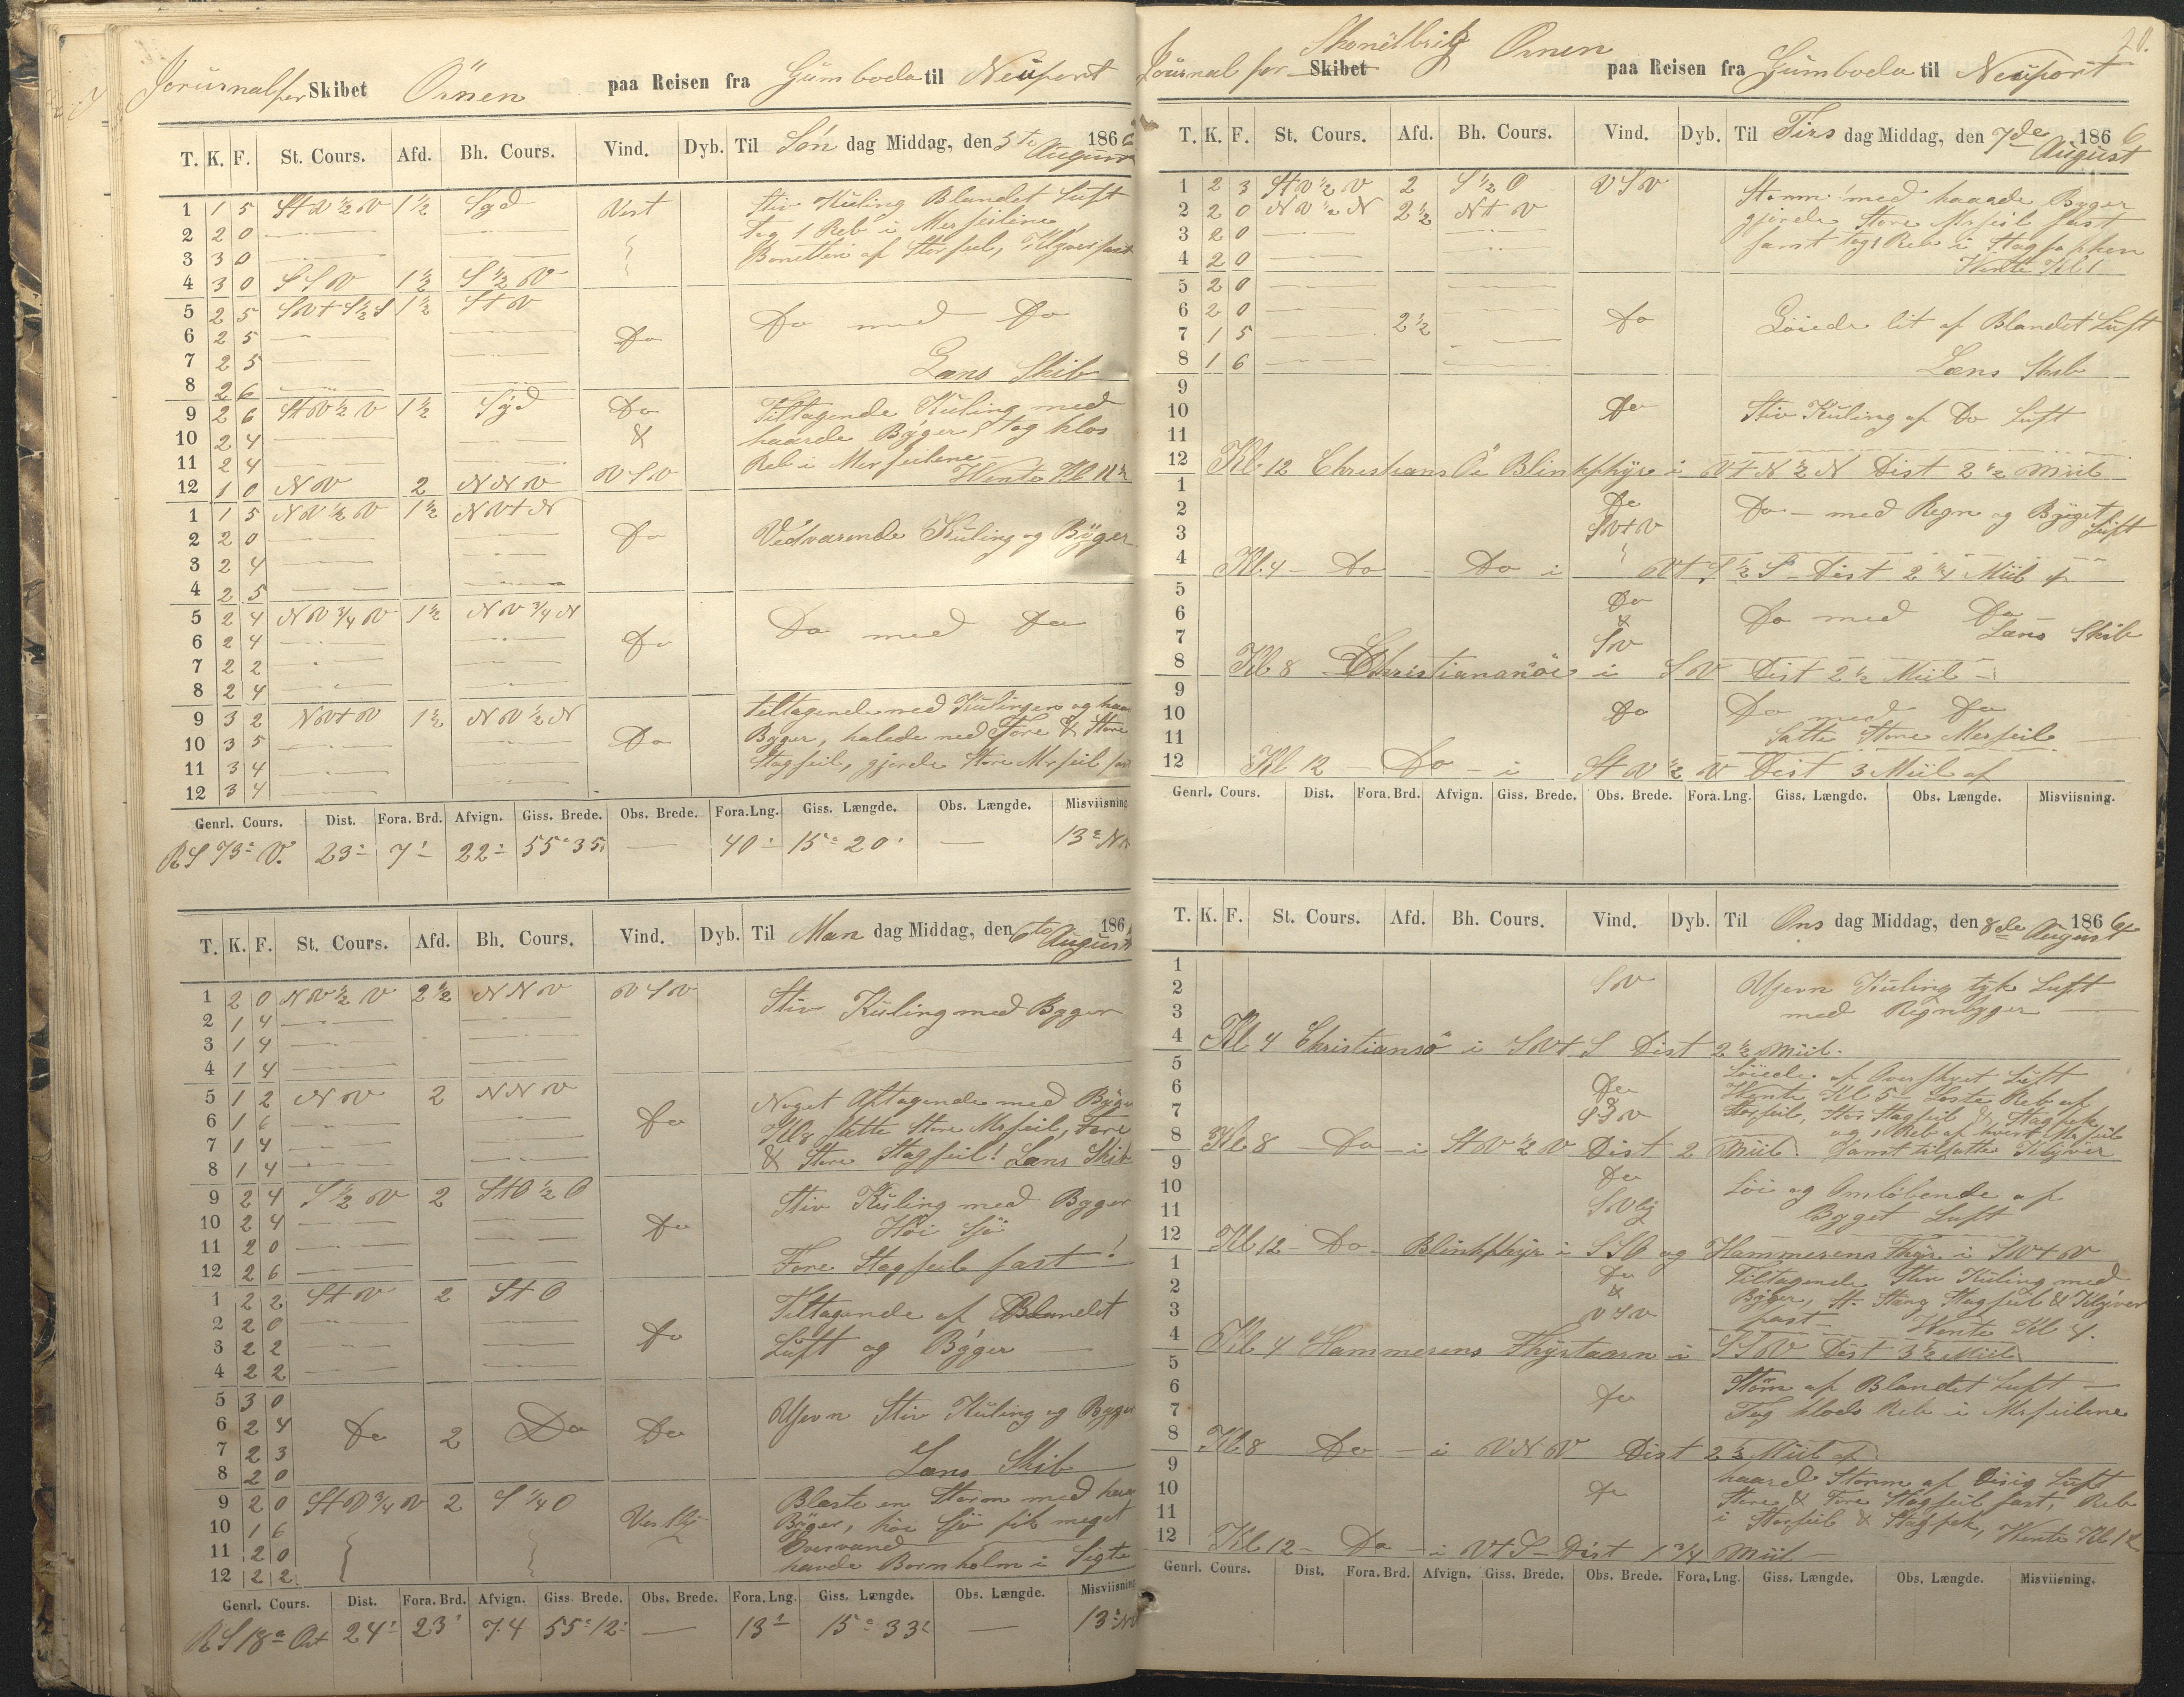 Journal for Skibet Örnen paa Reisen fra Gumboda til Neuport
T. K. F. St. Cours. Afd. Bh. Cours. Vind. Dyb. Til Søn dag Middag, den 5te August 1866
1 1 5 StV½V 1½ Syd Vest Stiv Kuling Blandet Luft
2 2 0 tog 1 Reb i Merseilene
3 3 0 Bonetten af Storseil, Klyver fast
4 3 0 SSV 1½ S½V
5 2 5 SVtS½S 1½ StV Do med Do
6 2 5 Do
7 2 5 Læns Skib
8 2 6
9 2 6 StV½V 1½ Syd Do Tiltagende Kuling med
10 2 4 & haarde Byger, tog klos
11 2 4 Reb i Merseilene
12 1 0 NV 2 NNV VSV Vente Kl 11½
1 1 5 NV½V 1½ NVtN
2 2 0 Do Vedvarende Kuling og Byger
3 2 4
4 2 5
5 2 4 NV¾V 1½ NV¾N Do med Do
6 2 4 Do
7 2 2
8 2 4
9 3 2 NVtV 1½ NV½N tiltagende med Kulingen og haar
10 3 5 Do Byger, halede ned Fore & Store
11 3 4 Stagseil, gjorde Store Mrseil fast
12 3 4
Genrl. Cours. Dist. Fora. Brd. Afvign. Giss. Brede. Obs. Brede. Fora. Lng. Giss. Længde. Obs. Længde. Misviisning.
RS 73° V. 23 7 22 55° 35 — 40 15° 20' — 13° NV
T. K. F. St. Cours. Afd. Bh. Cours. Vind. Dyb. Til Man dag Middag, den 6te August 186
1 2 0 NV½V 2½ NNV VSV Stiv Kuling med Byger
2 1 4
3 1 4
4 1 4
5 1 2 NV 2 NNV Noget Aftagende med Byger
6 1 6 Do Kl 8 satte Store Mrseil, Fore
7 1 4 & Store Stagseil! Læns Skib
8 1 4
9 2 4 S½V 2 StO½O Stiv Kuling med Byger
10 2 4 Do Høi Sjö
11 2 0
12 2 6 Fore Stagseil fast!
1 2 2 StV 2 StO Tiltagende af Blandet
2 2 0 Do
3 2 2 Luft og Byger
4 2 2
5 3 0 Ujevn Stiv Kuling og Byger
6 2 4 Do 2 Do Do
7 2 3
8 2 0 Læns Skib
9 2 0 StV¾V 2 S¼O Blæste en Storm med haar
10 1 6 Vestlig Byger, høi Sjö fik meget
11 2 0 Overvand
12 2 2 havde Bornholm i Sigte
Genrl. Cours. Dist. Fora. Brd. Afvign. Giss. Brede. Obs. Brede. Fora. Lng. Giss. Længde. Obs. Længde. Misviisning
RS 18° Ost 24 23 7.4 55° 12 — 13 15° 33 — 13° NV
20.
Journal for Skonëtbrig Örnen paa Reisen fra Gumboda til Neuport
Skibet
T. K. F. St. Cours. Afd. Bh. Cours. Vind. Dyb. Til Tirs dag Middag, den 7de August 1866
1 2 3 StV½V 2 S½O VSV Storm med haarde Byger
2 2 0 NV½N 2½ NtV gjorde Store Mrseil fast
3 2 0 samt tog 1 Reb i Stagfokken
4 2 0 Vente Kl 1
5 2 0
6 2 0 2½ Do Löiede lit af Blandet Luft
7 1 5
8 1 6 Læns Skib
9
10 Do Stiv Kuling af Do Luft
11
12 Kl 12 Christians Öe Blinkfhyr i VtN½N Dist 2½ Miil
1 Do Do — med Regn og Byget Luft
2
3 SVtV
4 Kl. 4 — Do — Do i VtS½S Dist 2¼ Miil
5 Do
6 & Do med Do
7 SV Læns Skib
8 Kl 8 Christiansöe i SV Dist 2½ Miil
9
10 Do Do med Do
11 Satte Store Merseil
12 Kl 12 — Do — i StV½V Dist 3 Miil af
Genrl. Cours. Dist. Fora. Brd. Afvign. Giss. Brede. Obs. Brede. Fora. Lng. Giss. Længde. Obs. Længde. Misviisning.
T. K. F. St. Cours. Afd. Bh. Cours. Vind. Dyb. Til Ons dag Middag, den 8de August 1866
1 SV Ujevn Kuling tyk Luft
2
3 med Regnbyger
4 Kl 4 Christiansö i SVtS Dist 2½ Miil.
5 Löiede af Overskyet Luft
6 Do Vente Kl 5 Loste Reb af
7 SSV Storseil, Stor Stagseil & Stagfok,
og 1 Reb af hvert Mrseil
8 Kl 8 — Do — i StV½V Dist 2 Miil. Samt tilsatte Klyver
9 Do
10 Löi og Omlöbende af
11 SVlig Byget Luft
12 Kl 12 — Do — Blinkfhyr i SSO og Hammerens Fhyr i SVtV
1 Do Tiltagende Stiv Kuling med
2 & Byger, St. Stang Stagseil & Klyver
3 VSV fast — Vente Kl 4.
4 Kl 4 Hammerens Fhyrtaarn i SSV Dist 3½ Miil
5
6 Do Storm af Blandet Luft —
7 Tog klods Reb i Mrseilene
8 Kl 8 Do — i VNV Dist 2½ Miil af
9 haard Storm af Disig Luft
10 Do Store & Fore Stagseil fast, Reb
11 i Storseil & Stagfok, Vente Kl 12
12 Kl 12 — Do — i VtS — Dist 1¾ Miil
Genrl. Cours. Dist. Fora. Brd. Afvign. Giss. Brede. Obs. Brede. Fora. Lng. Giss. Længde. Obs. Længde. Misviisning.